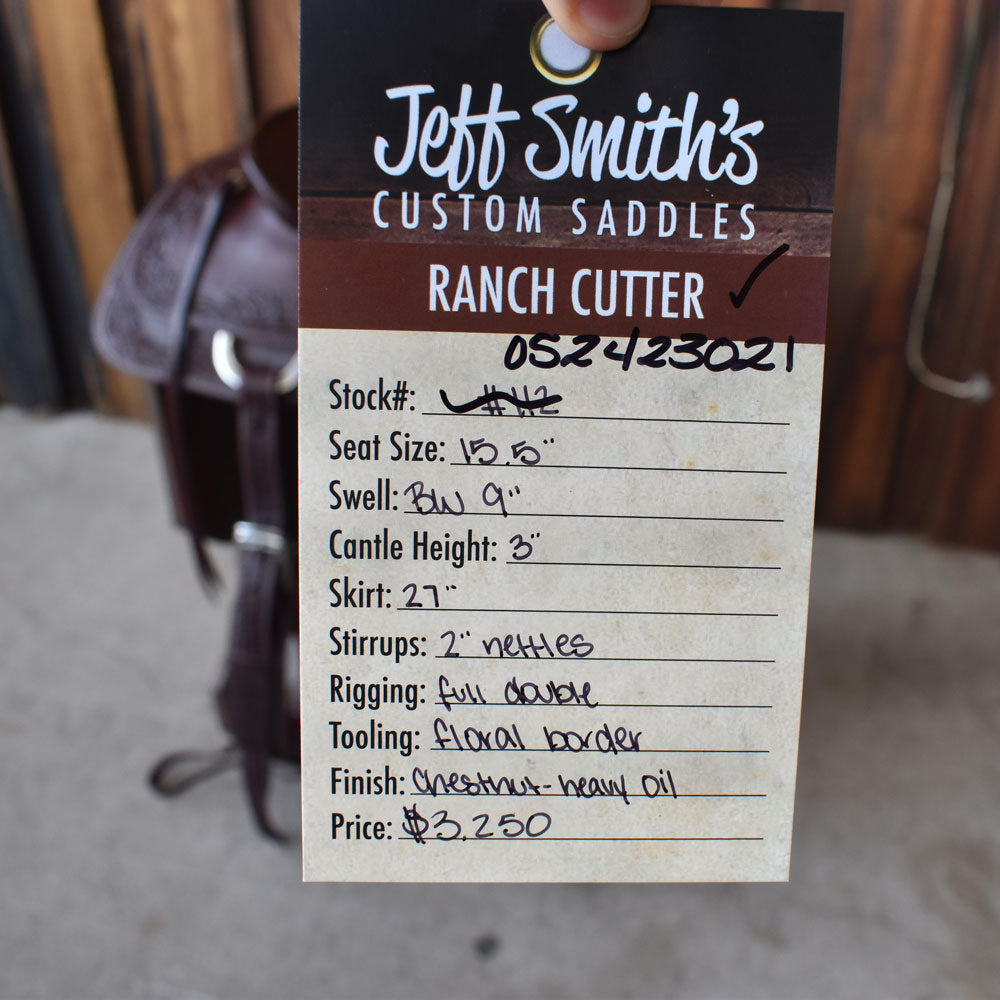 Jeff Smith's
CUSTOM SADDLES
RANCH CUTTER ✓
052423021
Stock#: #112
Seat Size: 15.5"
Swell: BW 9"
Cantle Height: 3"
Skirt: 27"
Stirrups: 2" nettles
Rigging: full double
Tooling: floral border
Finish: Chestnut-heavy oil
Price: $3,250